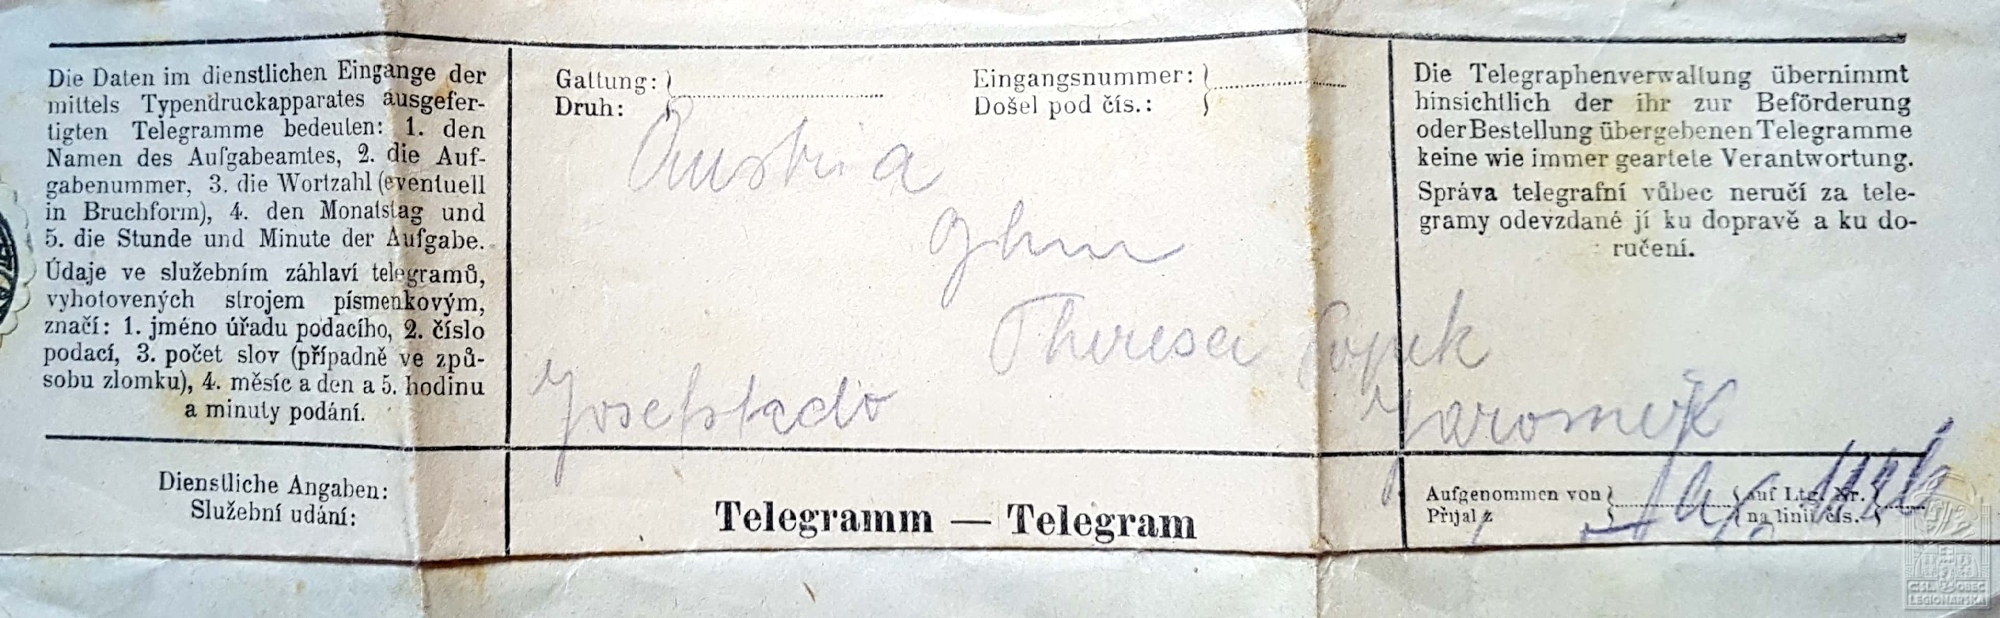 Die Daten im dienstlichen Eingange der
mittels Typendruckapparates ausgefer-
tigten Telegramme bedeuten: 1. den
Namen des Aufgabeamtes, 2. die Auf-
gabenummer, 3. die Wortzahl (eventuell
in Bruchform), 4. den Monatstag und
5. die Stunde und Minute der Aufgabe.
Údaje ve služebním záhlaví telegramů,
vyhotovených strojem písmenkovým,
značí: 1. jméno úřadu podacího, 2. číslo
podací, 3. počet slov (případně ve způ-
sobu zlomku), 4. měsíc a den a 5. hodinu
a minuty podání.
Gattung:
Druh:
Eingangsnummer:
Došel pod čís.:
Austria
Theresa
Josefstado
Jaroměř
Die Telegraphenverwaltung übernimmt
hinsichtlich der ihr zur Beförderung
oder Bestellung übergebenen Telegramme
keine wie immer geartete Verantwortung.
Správa telegrafní vůbec neručí za tele-
gramy odevzdané jí ku dopravě a ku do-
ručení.
Dienstliche Angaben:
Služební udání:
Telegramm — Telegram
Aufgenommen von auf Ltg. Nr.
Přijal z na linii čís.
ČSL. OBEC
LEGIONÁŘSKÁ